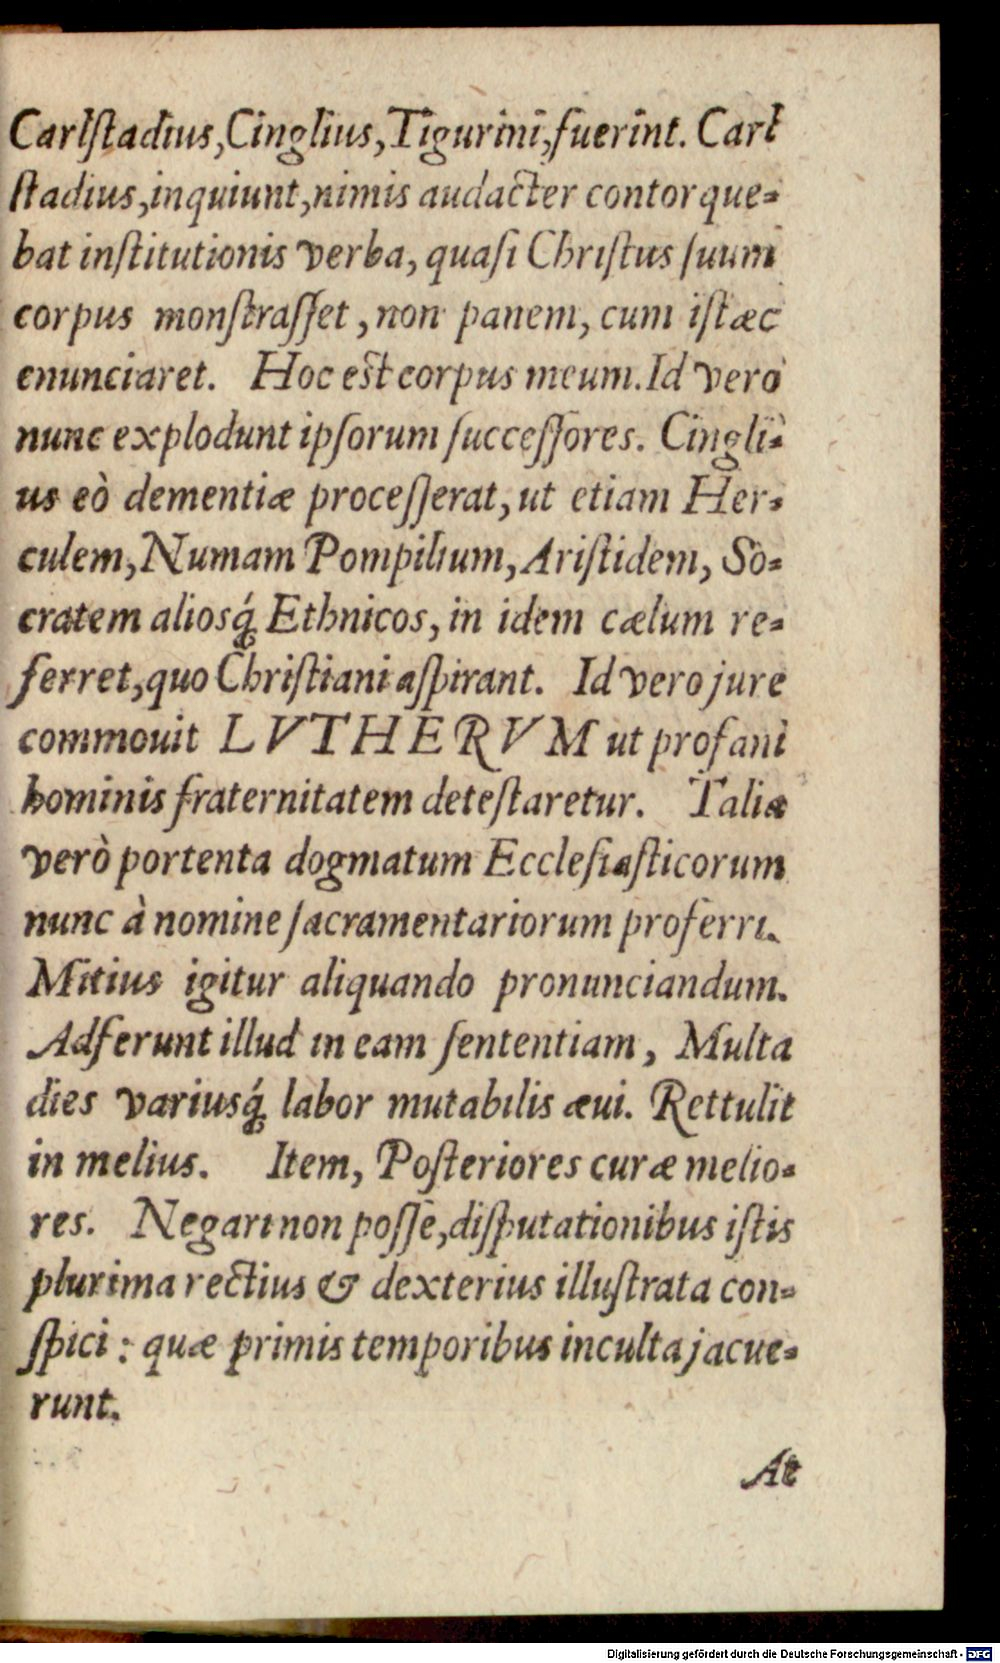 Carlſtadius, Cinglius, Tigurini, fuerint. Carl
ſtadius, inquiunt, nimis audacter contorque-
bat inſtitutionis verba, quaſi Chriſtus ſuum
corpus monſtraſſet, non panem, cum iſtæc
enunciaret. Hoc eſt corpus meum. Id verò
nunc explodunt ipſorum ſucceſſores. Cingli-
us eò dementiæ proceſſerat, ut etiam Her-
culem, Numam Pompilium, Ariſtidem, So-
cratem aliosq́; Ethnicos, in idem cælum re-
ferret, quo Chriſtiani aſpirant. Id vero jure
commouit LVTHERVM ut profani
hominis fraternitatem deteſtaretur. Talia
verò portenta dogmatum Eccleſiaſticorum
nunc à nomine ſacramentariorum proferri.
Mitius igitur aliquando pronunciandum.
Adferunt illud in eam ſententiam, Multa
dies variusq́; labor mutabilis æui. Rettulit
in melius. Item, Poſteriores curæ melio-
res. Negari non poſſe, diſputationibus iſtis
plurima rectius & dexterius illuſtrata con-
ſpici: quæ primis temporibus inculta jacue-
runt.
At
Digitalisierung gefördert durch die Deutsche Forschungsgemeinschaft - DFG